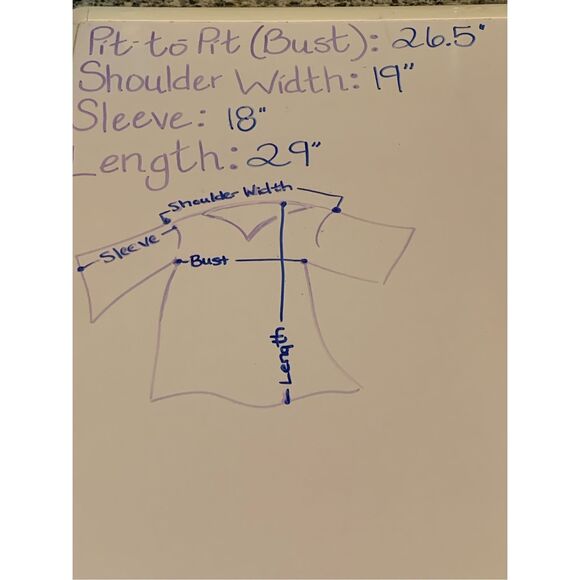 Pit-to-Pit (Bust): 26.5"
Shoulder Width: 19"
Sleeve: 18"
Length: 29"
Shoulder Width
Sleeve
Bust
Length